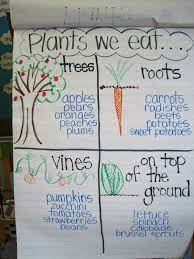 Plants we eat...
trees
apples
pears
oranges
peaches
plums
roots
carrots
radishes
beets
potatoes
sweet potatoes
vines
pumpkins
zucchini
tomatoes
strawberries
beans
on top
of the
ground
lettuce
spinach
cabbage
brussel sprouts